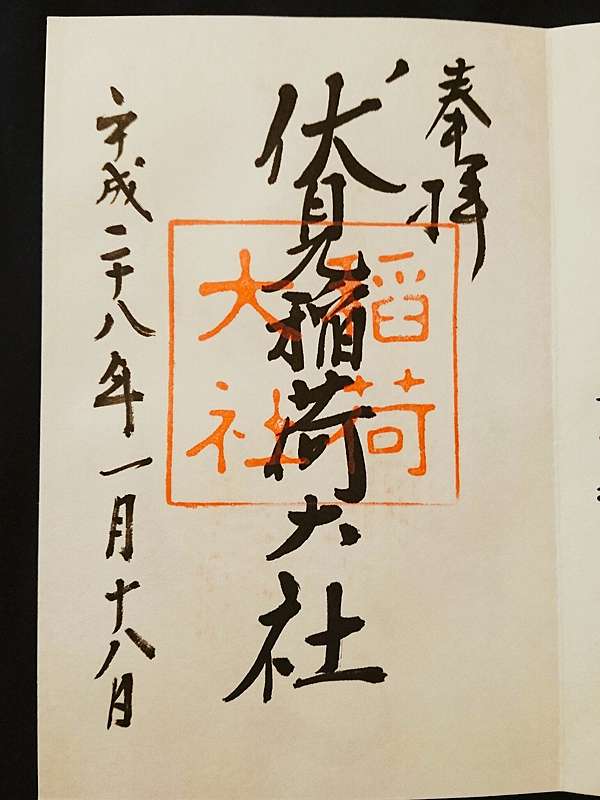 奉拝
伏見稲荷大社
稲荷
大社
平成二十八年一月十八日